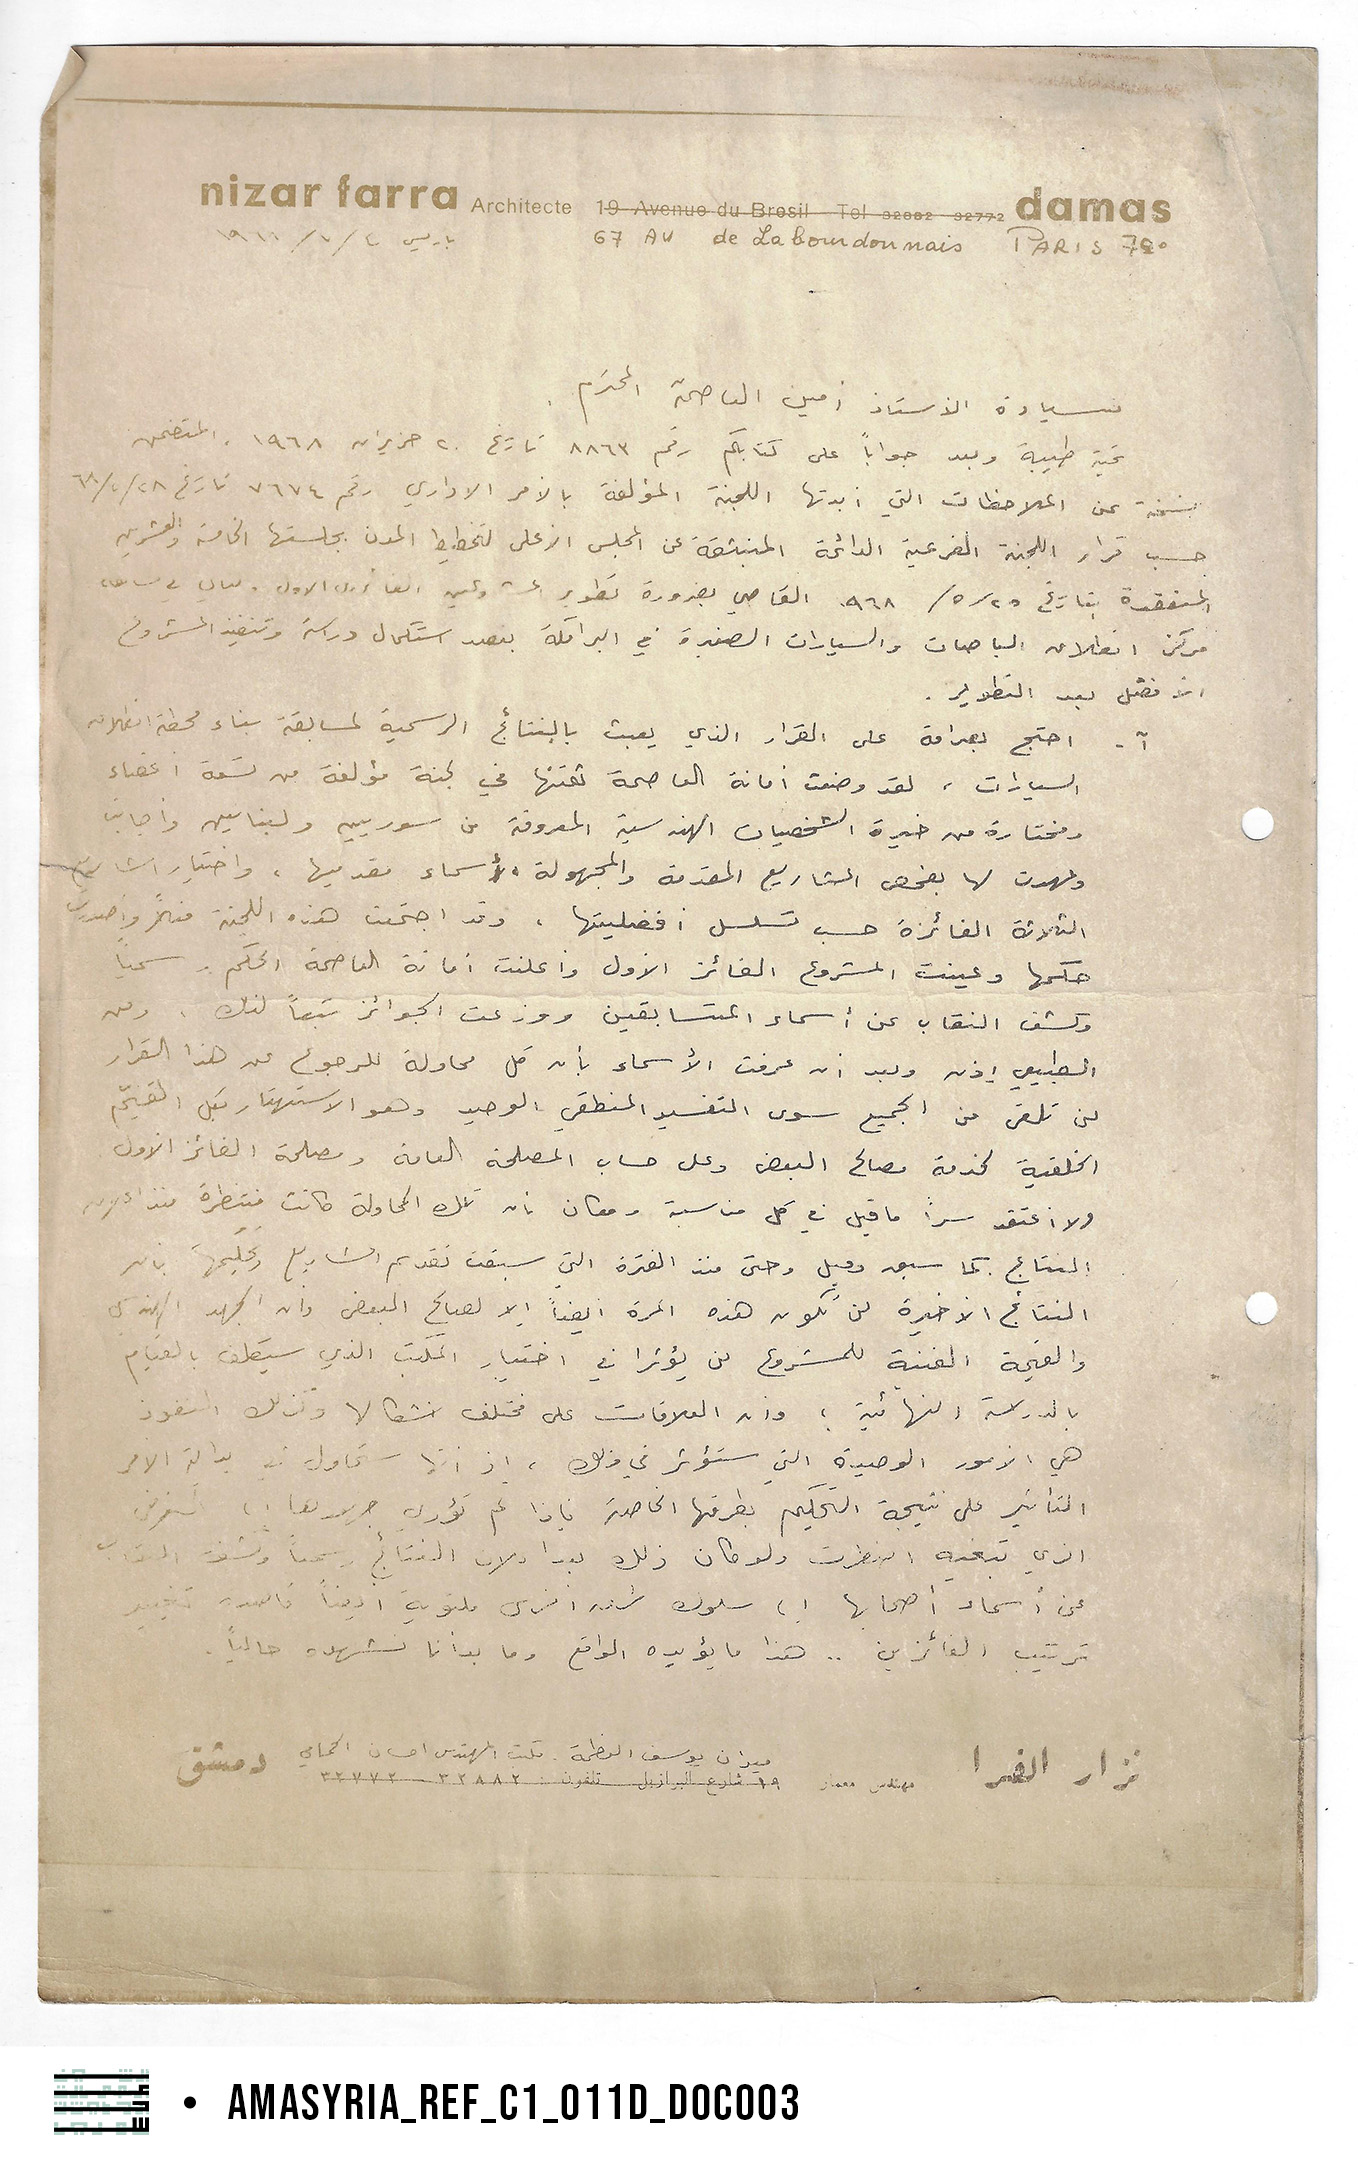 nizar farra Architecte 19 Avenue du Bresil Tel 32882 32772 damas
باريس 67 Av de Labourdonnais PARIS 7e
سيادة الاستاذ أمين العاصمة المحترم .
تحية طيبة وبعد جواباً على كتابكم رقم ٨٨٦٣ تاريخ ٢٠ حزيران ١٩٦٨ . المتضمن
نسخة عن الملاحظات التي أبدتها اللجنة المؤلفة بالأمر الاداري رقم ٧٦٧٤ تاريخ
حسب قرار اللجنة الفرعية الدائمة المنبثقة عن المجلس الأعلى لتخطيط المدن بجلستها الخامسة والعشرين
المنعقدة بتاريخ ٢٥/٥/١٩٦٨ القاضي بضرورة تطوير المشروعين الفائزين الاول والثاني في مسابقة
مركز انطلاق الباصات والسيارات الصغيرة في البرامكة بقصد استكمال دراسة وتنفيذ المشروع
الأفضل بعد التطوير .
آ - احتج بصرامة على القرار الذي يعبث بالنتائج الرسمية لمسابقة بناء محطة انطلاق
السيارات ، لقد وضعت أمانة العاصمة ثقتها في لجنة مؤلفة من تسعة أعضاء
ومختارة من خيرة الشخصيات الهندسية المعروفة من سوريين ولبنانيين وأجانب
وعهدت لها بفحص المشاريع المقدمة والمجهولة أسماء مقدميها ، واختيار المشاريع
الثلاثة الفائزة حسب تسلسل أفضليتها ، وقد اجتمعت هذه اللجنة فعلاً وأصدرت
حكمها وعينت المشروع الفائز الاول وأعلنت أمانة العاصمة الحكم رسمياً
وكشف النقاب عن أسماء المتسابقين ووزعت الجوائز تبعاً لذلك . ومن
الطبيعي إذن وبعد ان عرفت الأسماء بأن كل محاولة للرجوع عن هذا القرار
لن تلقى من الجميع سوى التفسير المنطقي الوحيد وهو الاستهتار بكل القيم
الخلقية لخدمة مصالح البعض وعلى حساب المصلحة العامة ومصلحة الفائز الاول
ولا أعتقد سراً ما قيل في كل مناسبة ومكان بأن تلك المحاولة كانت منتظرة منذ اعلان
النتائج . كما سبق وقيل وحتى منذ الفترة التي سبقت تقديم المشاريع وتحكيمها بأن
النتائج الأخيرة لن تكون هذه المرة أيضاً إلا لصالح البعض وأن الجهد الهندسي
والقيمة الفنية للمشروع لن يؤثرا في اختيار المكتب الذي سيكلف بالقيام
بالدراسة النهائية ، وان العلاقات على مختلف أشكالها وكذلك النفوذ
هي الأمور الوحيدة التي ستؤثر في ذلك ، إذ أنها ستحاول في بداية الأمر
التأثير على نتيجة التحكيم بطرقها الخاصة فإذا لم تؤدي جهودها إلى الغرض
الذي تبغيه اضطرت ولو كان ذلك بعد اعلان النتائج رسمياً وكشف النقاب
عن أسماء أصحابها إلى سلوك طرق أخرى ملتوية أيضاً قاصدة تغيير
ترتيب الفائزين .. هذا ما يؤيده الواقع وما بدأنا نشهده حالياً .
نزار الفرا مهندس معمار ميدان يوسف العظمة . مكتب المهندس احسان دمشق
١٩ شارع البرازيل تلفون : ٣٢٨٨٢ - ٣٢٧٧٢
AMASYRIA_REF_C1_011D_DOC003